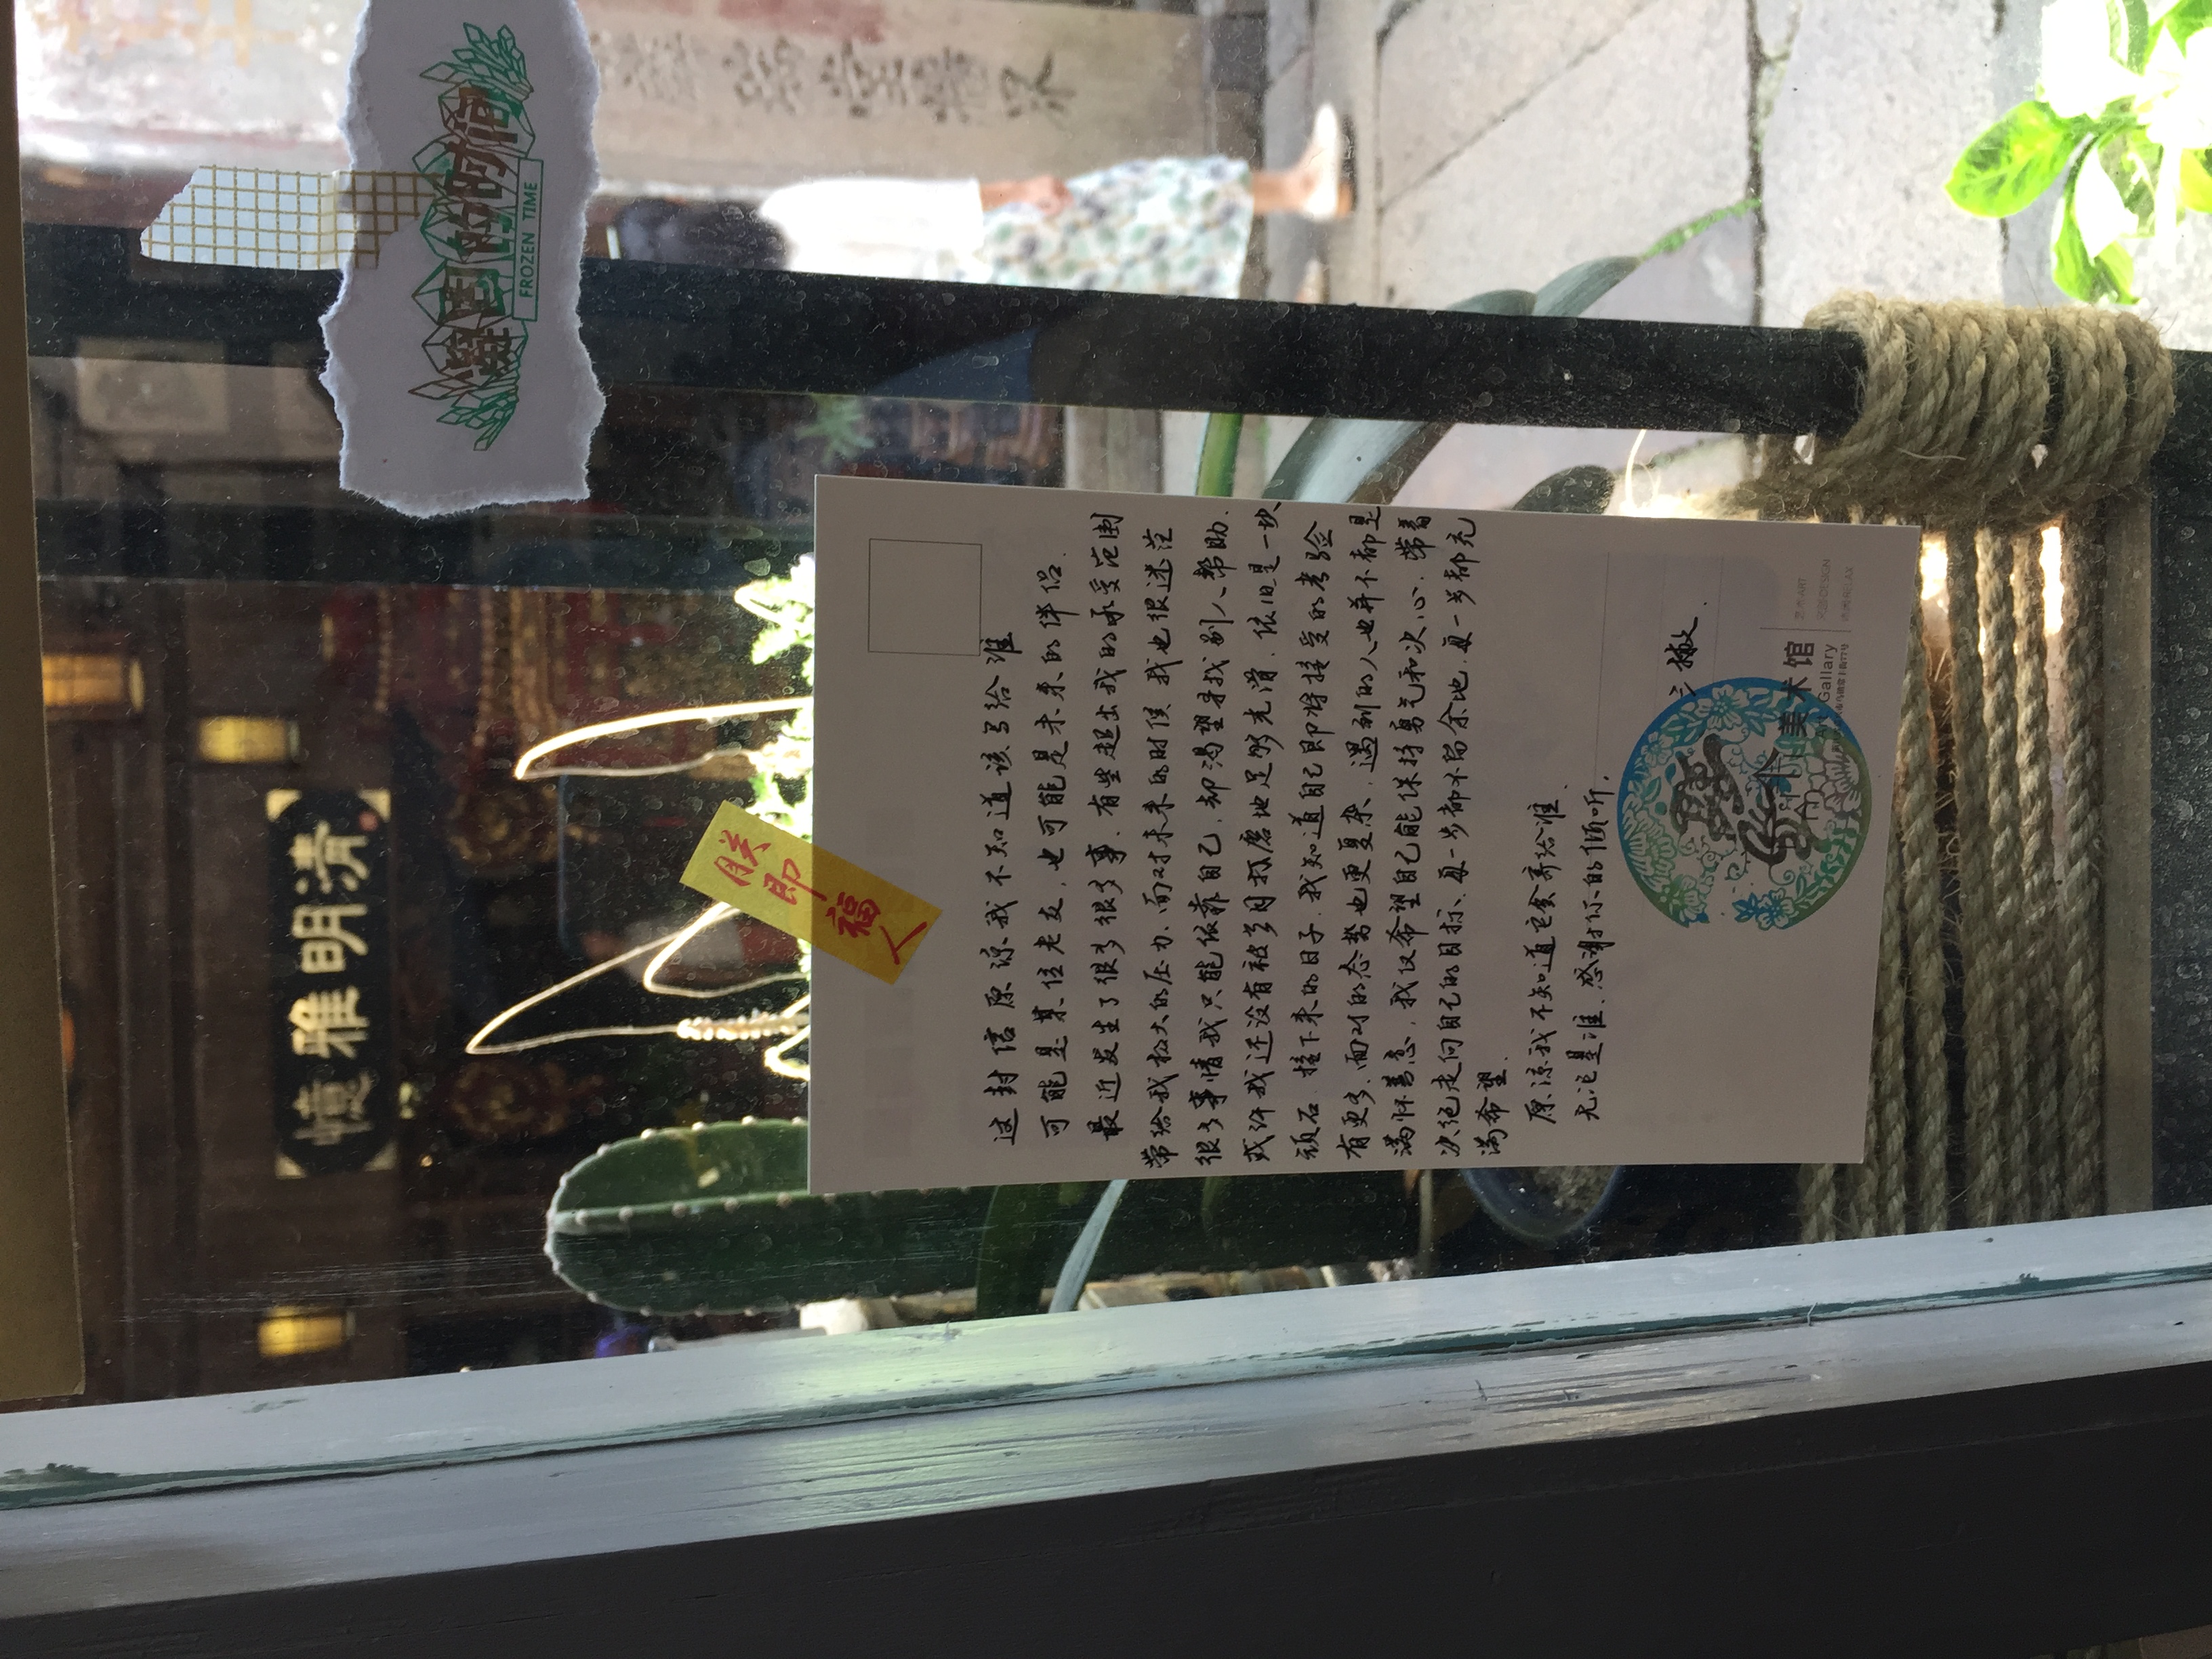 清明雅憶
凝固的时间
FROZEN TIME
朕即福人
这封信原凉我不知道该写给谁
可能是某位老友,也可能是未来的伴侣.
最近发生了很多很多事.有些超出我的承受范围
带给我极大的压力.面对未来的时候 我也很迷茫
很多事情我只能依靠自己,却渴望寻找别人帮助.
或许我还没有被岁月打磨地足够光滑.依旧是一块
顽石.接下来的日子.我知道自己即将接受的考验
有更多.面对的态势也更复杂.遇到的人也并不都是
满怀善意,我仅希望自己能保持勇气和决心.带着
决绝走向自己的目标、每一步都不留余地.每一步都充
满希望.
原凉我不知道它会寄给谁.
无论是谁.感谢你的倾听.
美术馆
Art Gallary
艺术·ART
DESIGN
RELAX